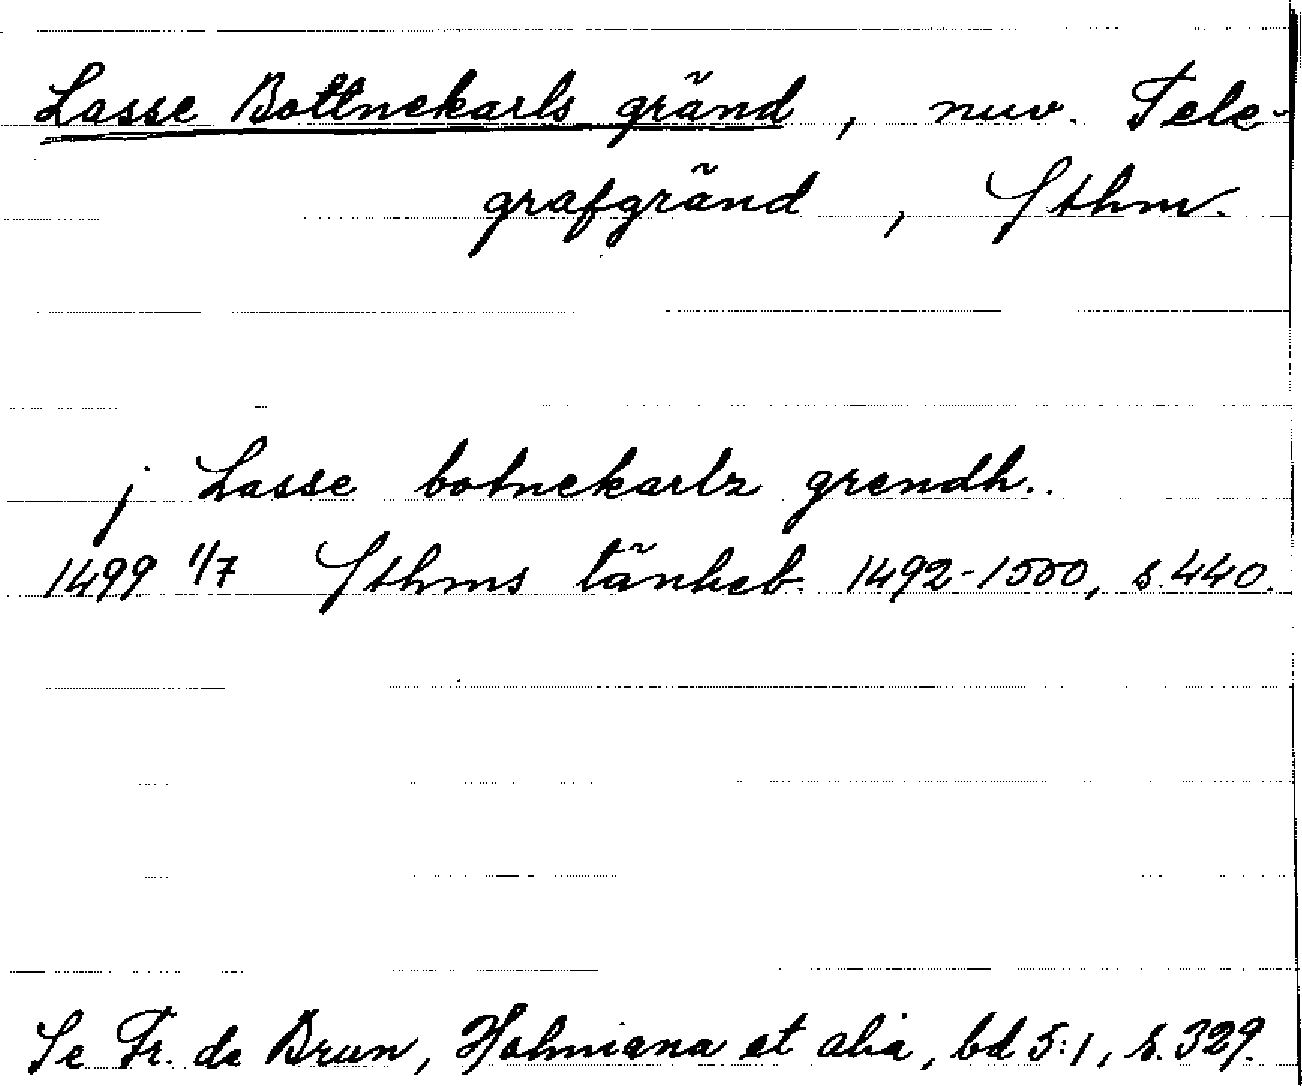 Lasse Bottnekarls gränd, nuv. Tele-
grafgränd, Sthm.
j Lasse botnekarlz grendh..
1499 1/7 Sthms tänkeb. 1492-1500, s. 440.
Se Fr. de Brun, Holmiana et alia, bd 5:1, s. 329.